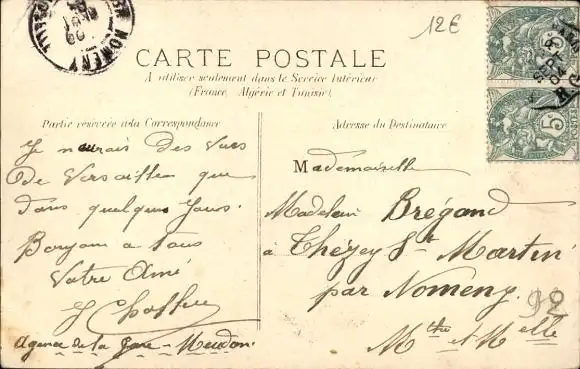 12€
NOMENY
CARTE POSTALE
A utiliser seulement dans le Service Intérieur
(France, Algérie et Tunisie).
Partie réservée à la Correspondance
Adresse du Destinataire
Je n'aurais des vues
de Versailles que
dans quelques jours.
Bonjour a tous
Votre Ami
Agence de la Gare - Meudon
Mademoiselle
Madelein Brégand
à Thézey St Martin
par Nomeny
Mthe et Melle
92
5c
5c
SEPT
04